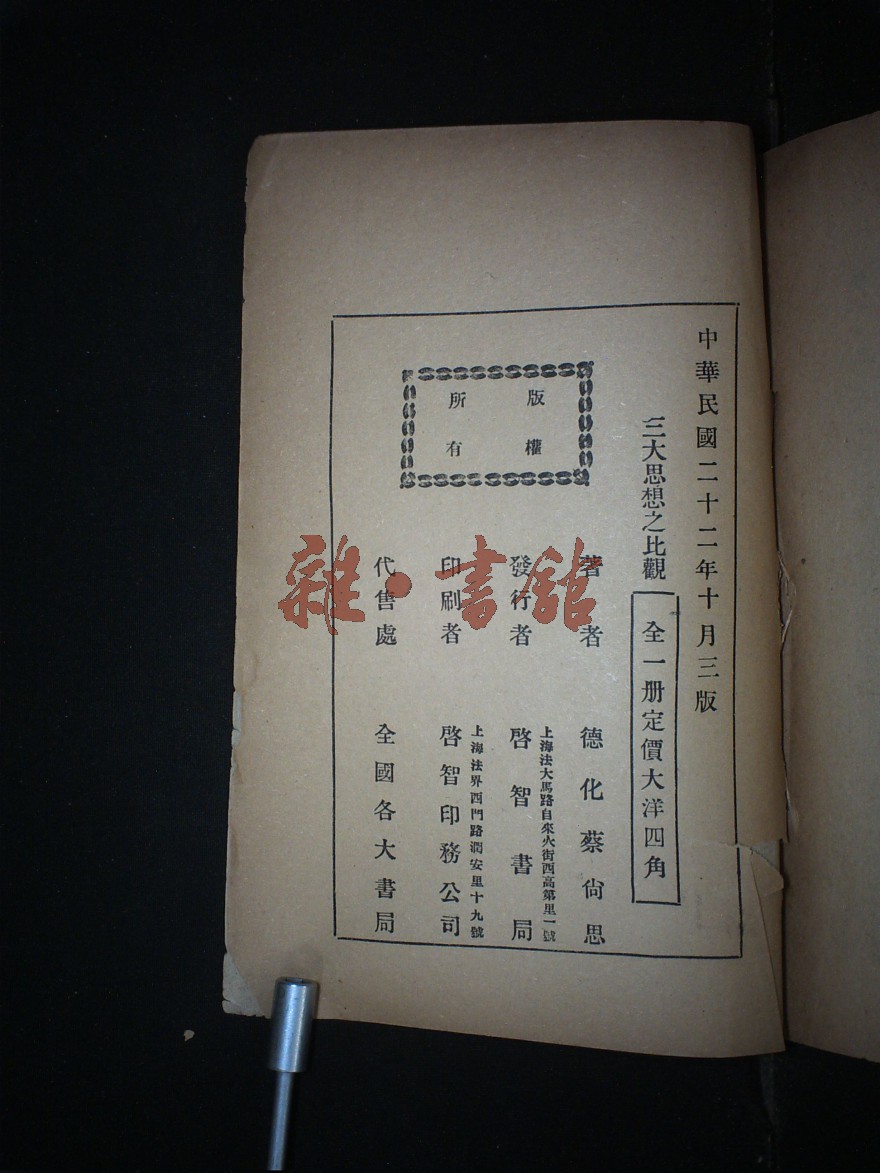 中華民國二十二年十月三版
三大思想之比觀
全一册定價大洋四角
版權
所有
著者 德化蔡尙思
上海法大馬路自來火街西高第里一號
發行者 啓智書局
上海法界西門路潤安里十九號
印刷者 啓智印務公司
代售處 全國各大書局
雜·書舘